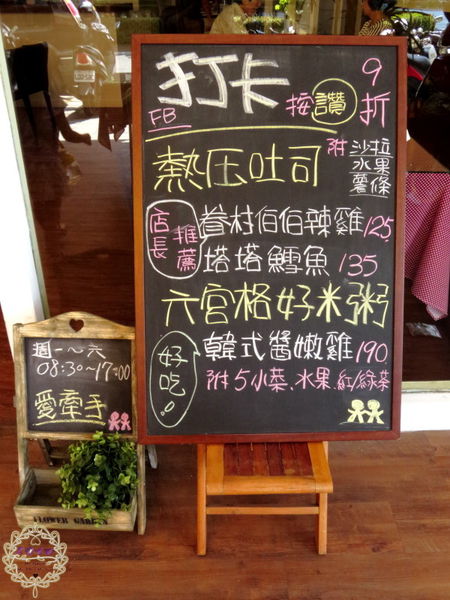 打卡
FB
按讚
9折
熱压吐司
附
沙拉
水果
薯條
店長推薦
眷村伯伯辣雞125
塔塔鱈魚135
六宫格好米粥
好吃!
韓式醬嫩雞190
附5小菜、水果、紅/綠茶
週一~六
08:30~17:00
愛牽手
FLOWER GARDEN